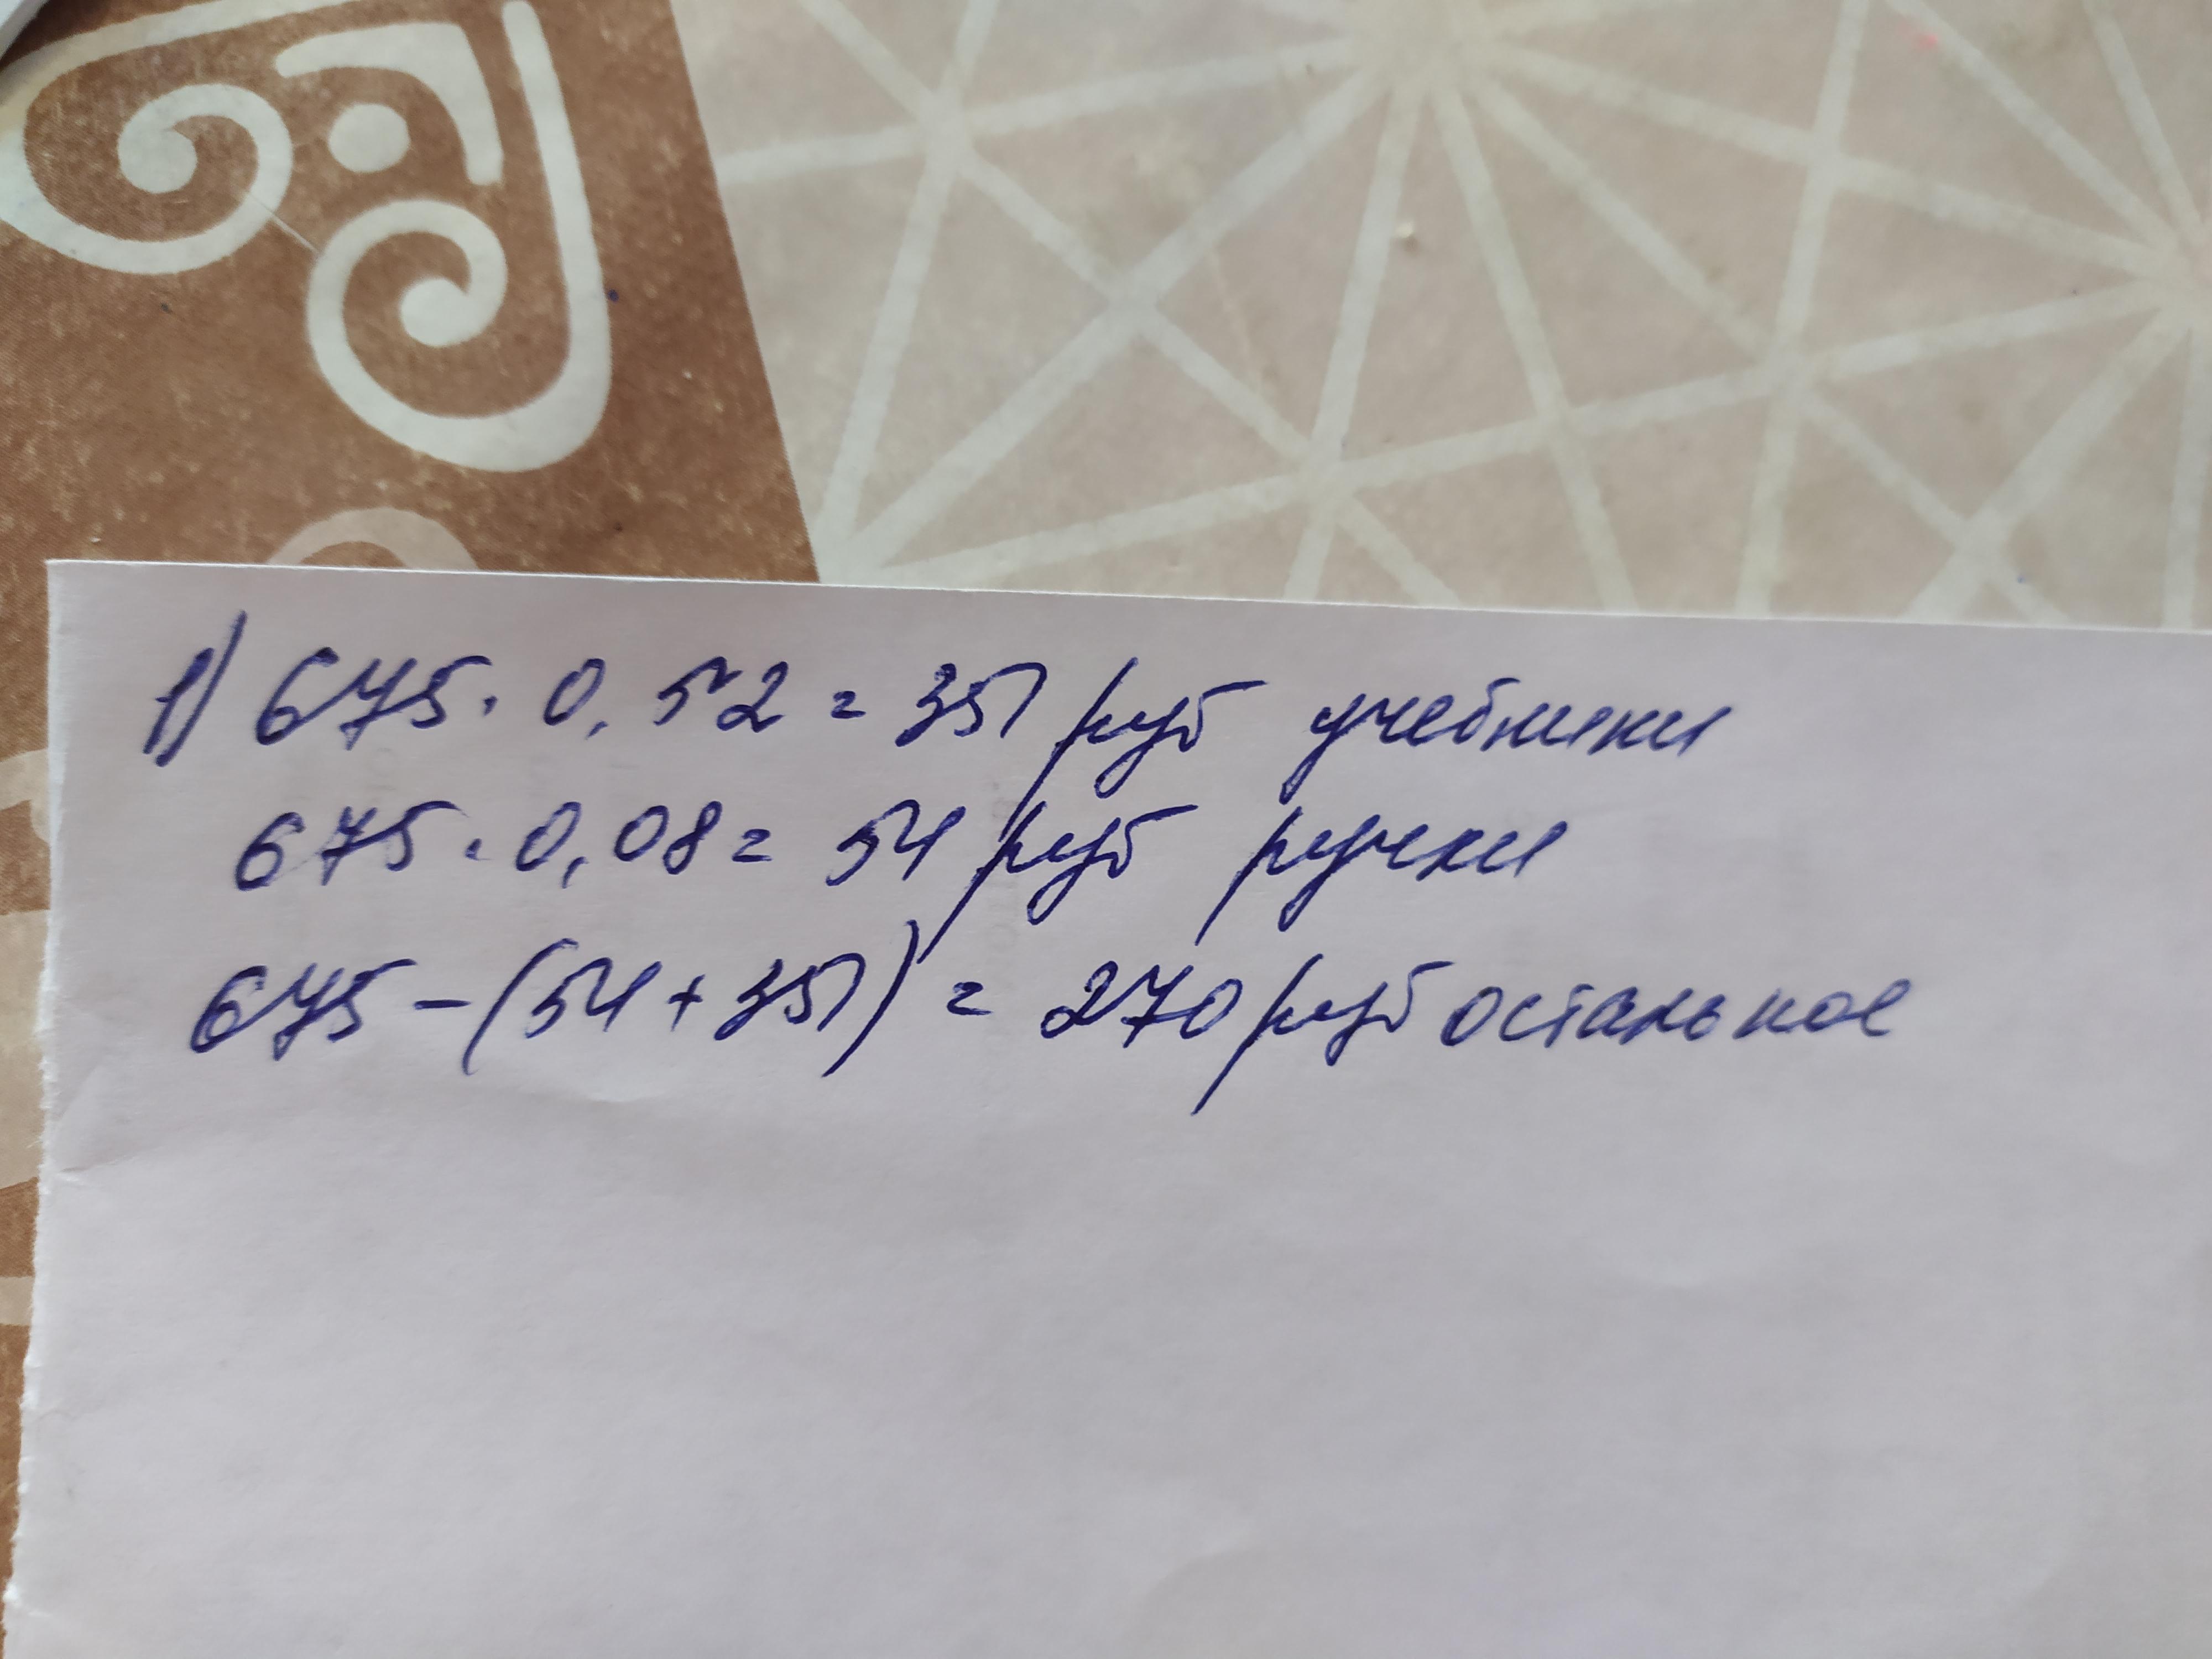 1) 675 · 0,52 = 351 руб учебники
675 · 0,08 = 54 руб ручки
675 - (54 + 351) = 270 руб остальное